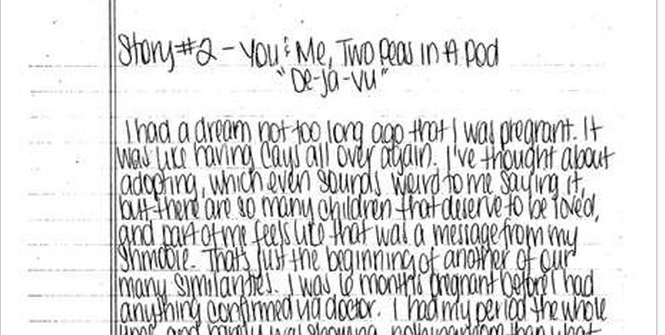 Story #2 - You & Me, Two Peas in A Pod
"De-ja-vu"
I had a dream not too long ago that I was pregnant. It
was like having Cays all over again. I've thought about
adopting, which even sounds weird to me saying it,
but there are so many children that deserve to be loved,
and part of me feels like that was a message from my
Shmobie. That's just the beginning of another of our
many similarities. I was 6 months pregnant before I had
anything confirmed via doctor. I had my period the whole
time, and rarely was showing, nothing more than what